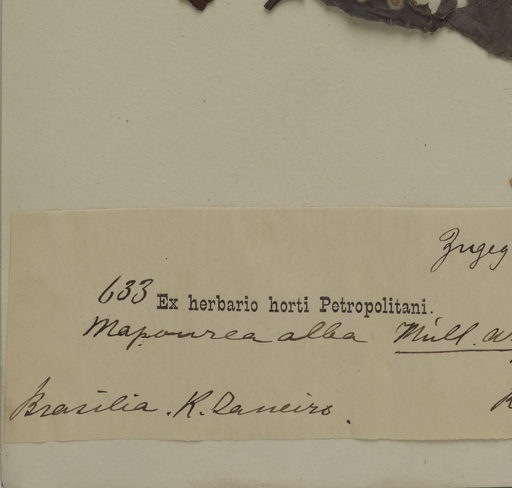 Zugeg
633 Ex herbario horti Petropolitani.
Mapourea alba Müll. Ar
Brasilia. R. Janeiro.